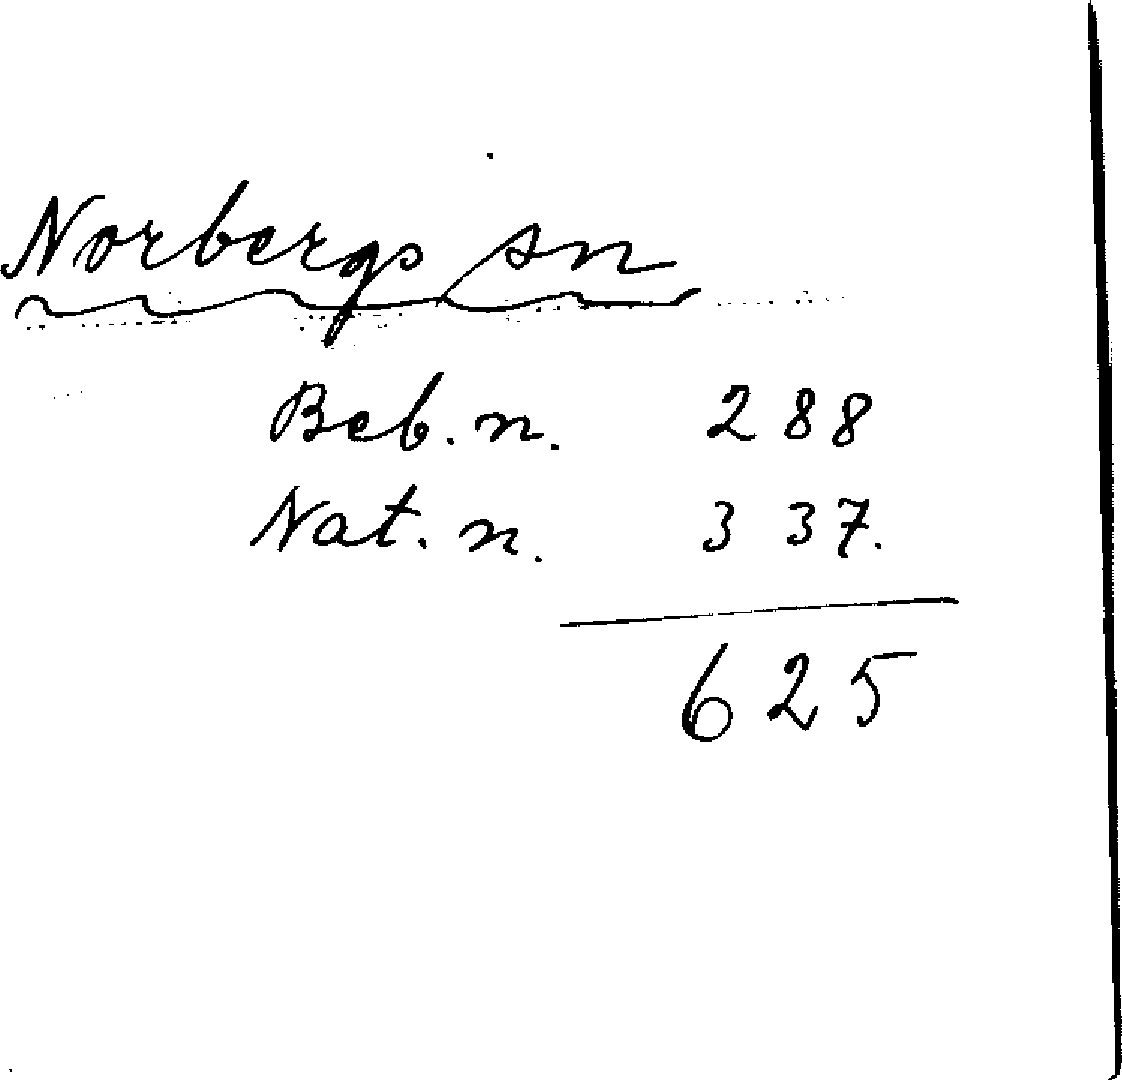 Norbergs sn
Beb. n. 288
Nat. n. 337.
625